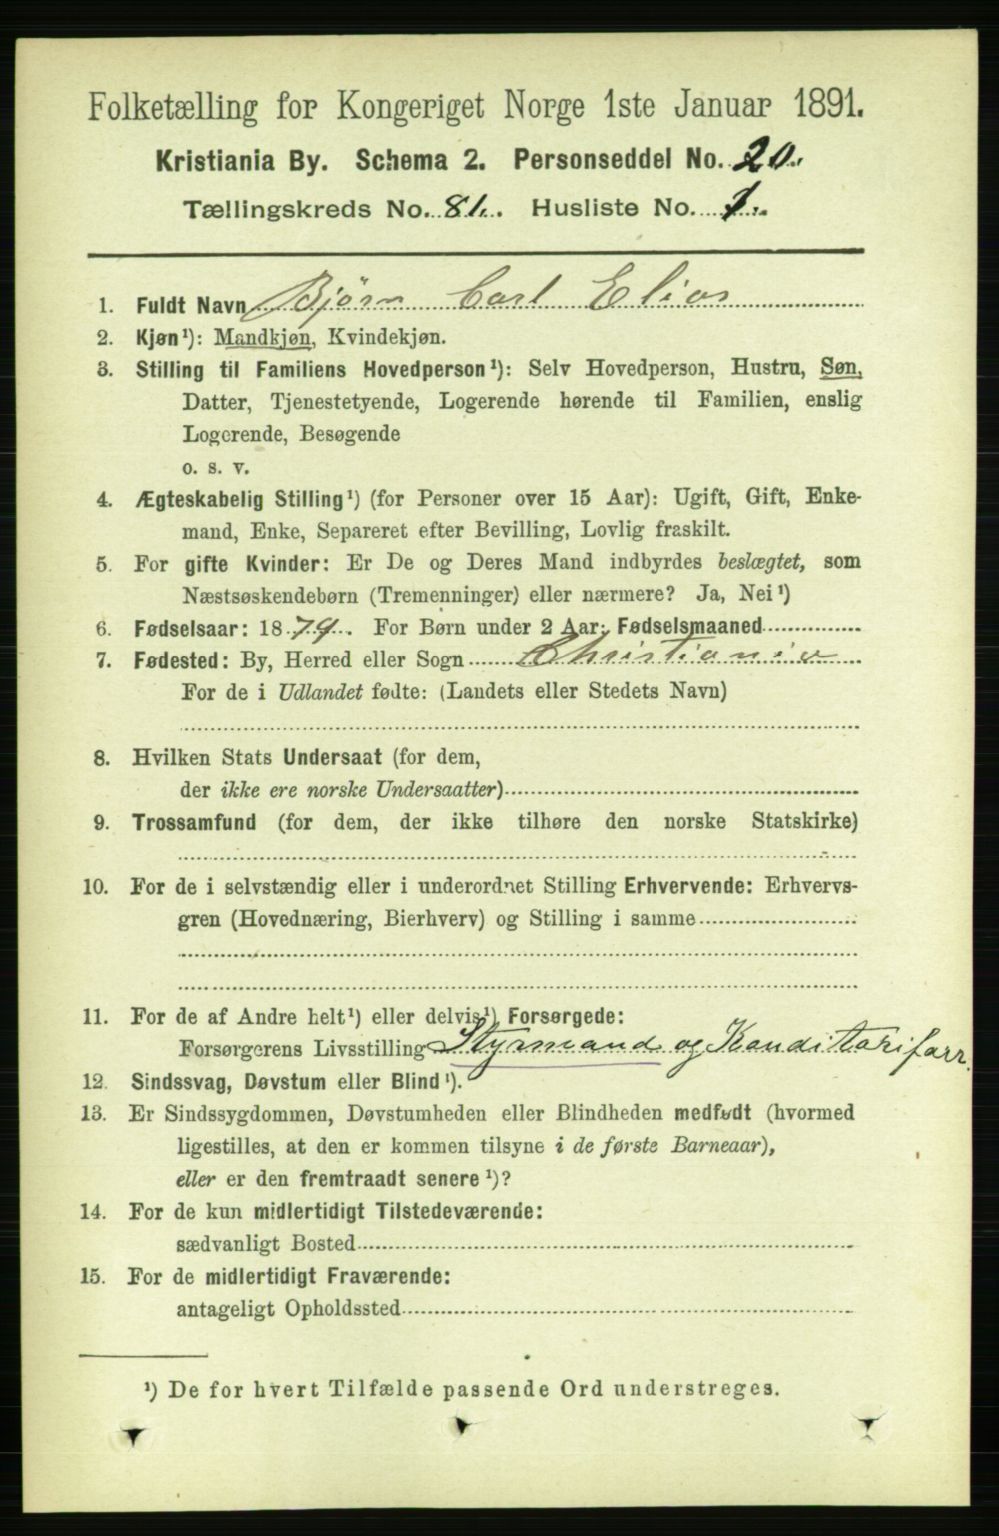 Folketælling for Kongeriget Norge 1ste Januar 1891.
Kristiania By. Schema 2. Personseddel No. 20.
Tællingskreds No. 81. Husliste No. 1.
1. Fuldt Navn Bjørn Carl Elias
2. Kjøn¹): Mandkjøn, Kvindekjøn.
3. Stilling til Familiens Hovedperson¹): Selv Hovedperson, Hustru, Søn,
Datter, Tjenestetyende, Logerende hørende til Familien, enslig
Logerende, Besøgende
o. s. v.
4. Ægteskabelig Stilling¹) (for Personer over 15 Aar): Ugift, Gift, Enke-
mand, Enke, Separeret efter Bevilling, Lovlig fraskilt.
5. For gifte Kvinder: Er De og Deres Mand indbyrdes beslægtet, som
Næstsøskendebørn (Tremenninger) eller nærmere? Ja, Nei¹)
6. Fødselsaar: 1879. For Børn under 2 Aar: Fødselsmaaned
7. Fødested: By, Herred eller Sogn Christiania
For de i Udlandet fødte: (Landets eller Stedets Navn)
8. Hvilken Stats Undersaat (for dem,
der ikke ere norske Undersaatter)
9. Trossamfund (for dem, der ikke tilhøre den norske Statskirke)
10. For de i selvstændig eller i underordnet Stilling Erhvervende: Erhvervs-
gren (Hovednæring, Bierhverv) og Stilling i samme
11. For de af Andre helt¹) eller delvis¹) Forsørgede:
Forsørgerens Livsstilling Styrmand og Konditorifarr.
12. Sindssvag, Døvstum eller Blind¹).
13. Er Sindssygdommen, Døvstumheden eller Blindheden medfødt (hvormed
ligestilles, at den er kommen tilsyne i de første Barneaar),
eller er den fremtraadt senere¹)?
14. For de kun midlertidigt Tilstedeværende:
sædvanligt Bosted
15. For de midlertidigt Fraværende:
antageligt Opholdssted
¹) De for hvert Tilfælde passende Ord understreges.